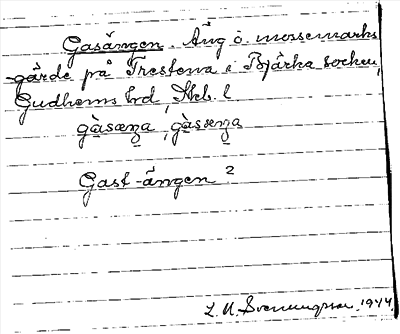 Gasängen. Äng o. mossemarks
gärde på Trestena i Bjärka socken,
Gudhems hrd, Skb. l.
gàsæŋa, gàsæŋa
Gast-ängen?
L. M. Svenungsson. 1944.